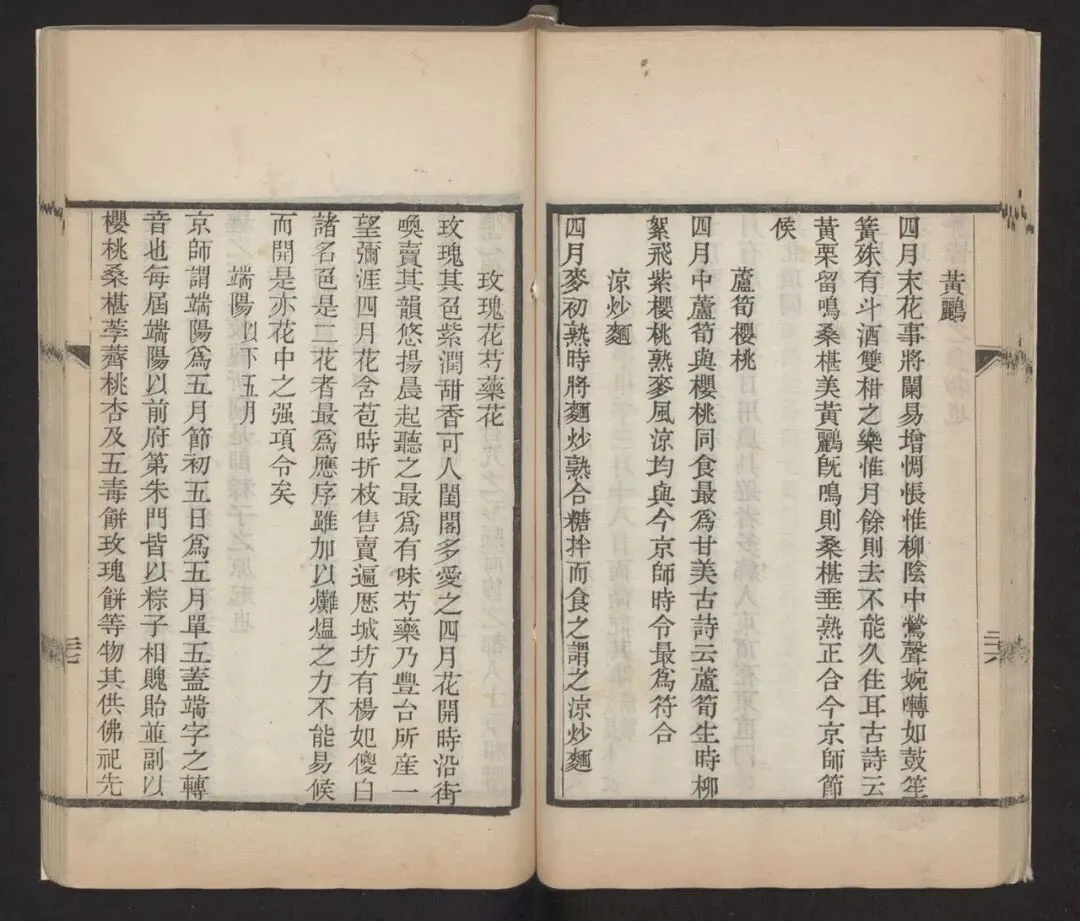 黃鸝
四月末花事將闌易增惆悵惟柳陰中鶯聲婉囀如鼓笙
簧殊有斗酒雙柑之樂惟月餘則去不能久住耳古詩云
黃栗留鳴桑椹美黃鸝旣鳴則桑椹垂熟正合今京師節
侯
蘆筍櫻桃
四月中蘆筍與櫻桃同食最爲甘美古詩云蘆筍生時柳
絮飛紫櫻桃熟麥風涼均與今京師時令最爲符合
涼炒麵
四月麥初熟時將麵炒熟合糖拌而食之謂之涼炒麵
二十六
玫瑰花芍藥花
玫瑰其色紫潤甜香可人閨閣多愛之四月花開時沿街
喚賣其韻悠揚晨起聽之最爲有味芍藥乃豐台所産一
望彌涯四月花含苞時折枝售賣遍厯城坊有楊妃傻白
諸名色是二花者最爲應序雖加以爁煴之力不能易候
而開是亦花中之强項令矣
端陽以下五月
京師謂端陽爲五月節初五日爲五月單五蓋端字之轉
音也每屆端陽以前府第朱門皆以粽子相餽貽並副以
櫻桃桑椹荸薺桃杏及五毒餅玫瑰餅等物其供佛祀先